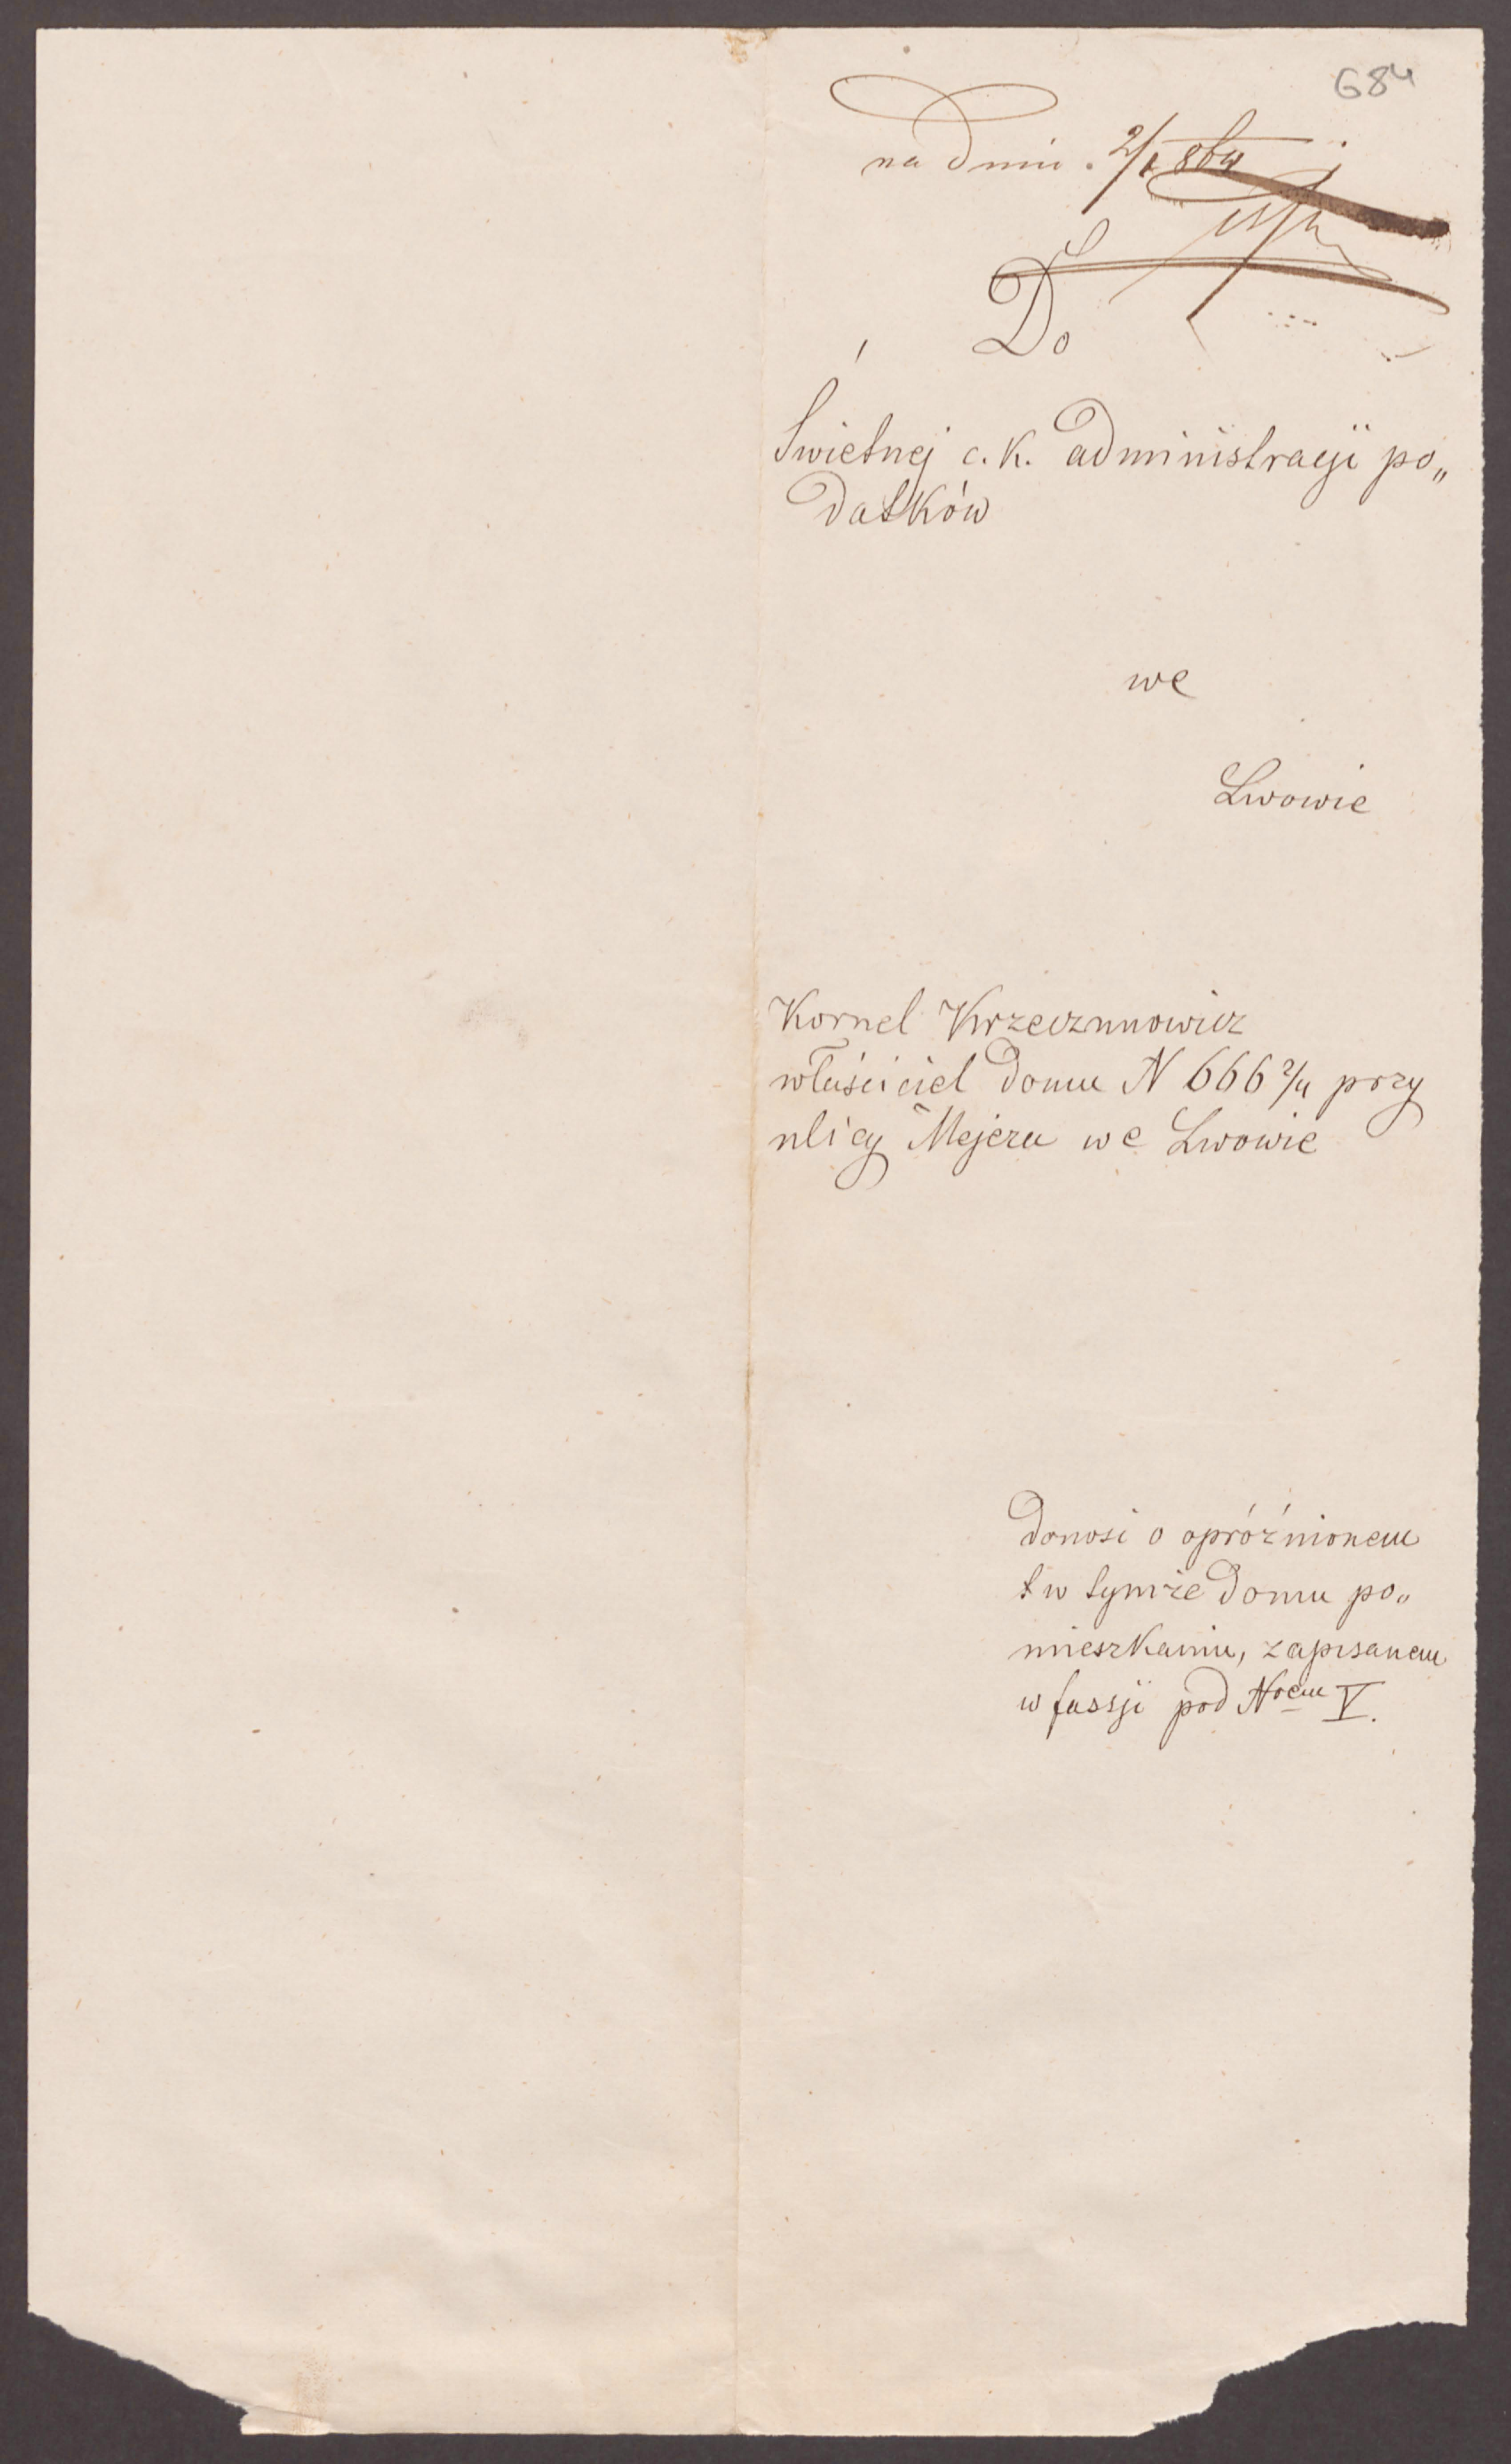 684
na dniu 2/
Do
Świetnej c. k. administracji po„
datków
we
Lwowie
Kornel Krzeczunowicz
właściciel domu N 666 2/4 przy
ulicy Mejera we Lwowie
donosi o opróżnionem
w tymże domu po„
mieszkaniu, zapisanem
w fassji pod Nrem V.